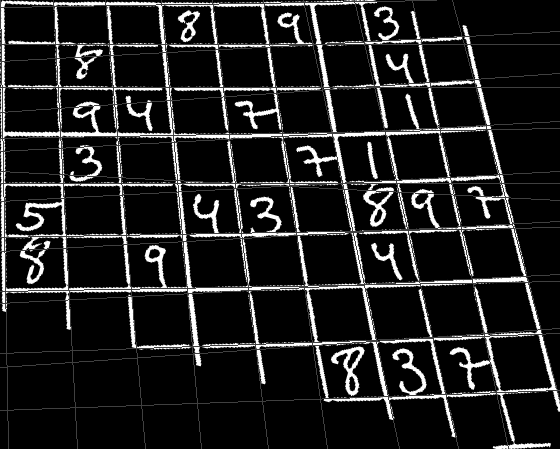 8 9 3
8 4
9 4 7 1
3 7 1
5 4 3 8 9 7
8 9 4
8 3 7